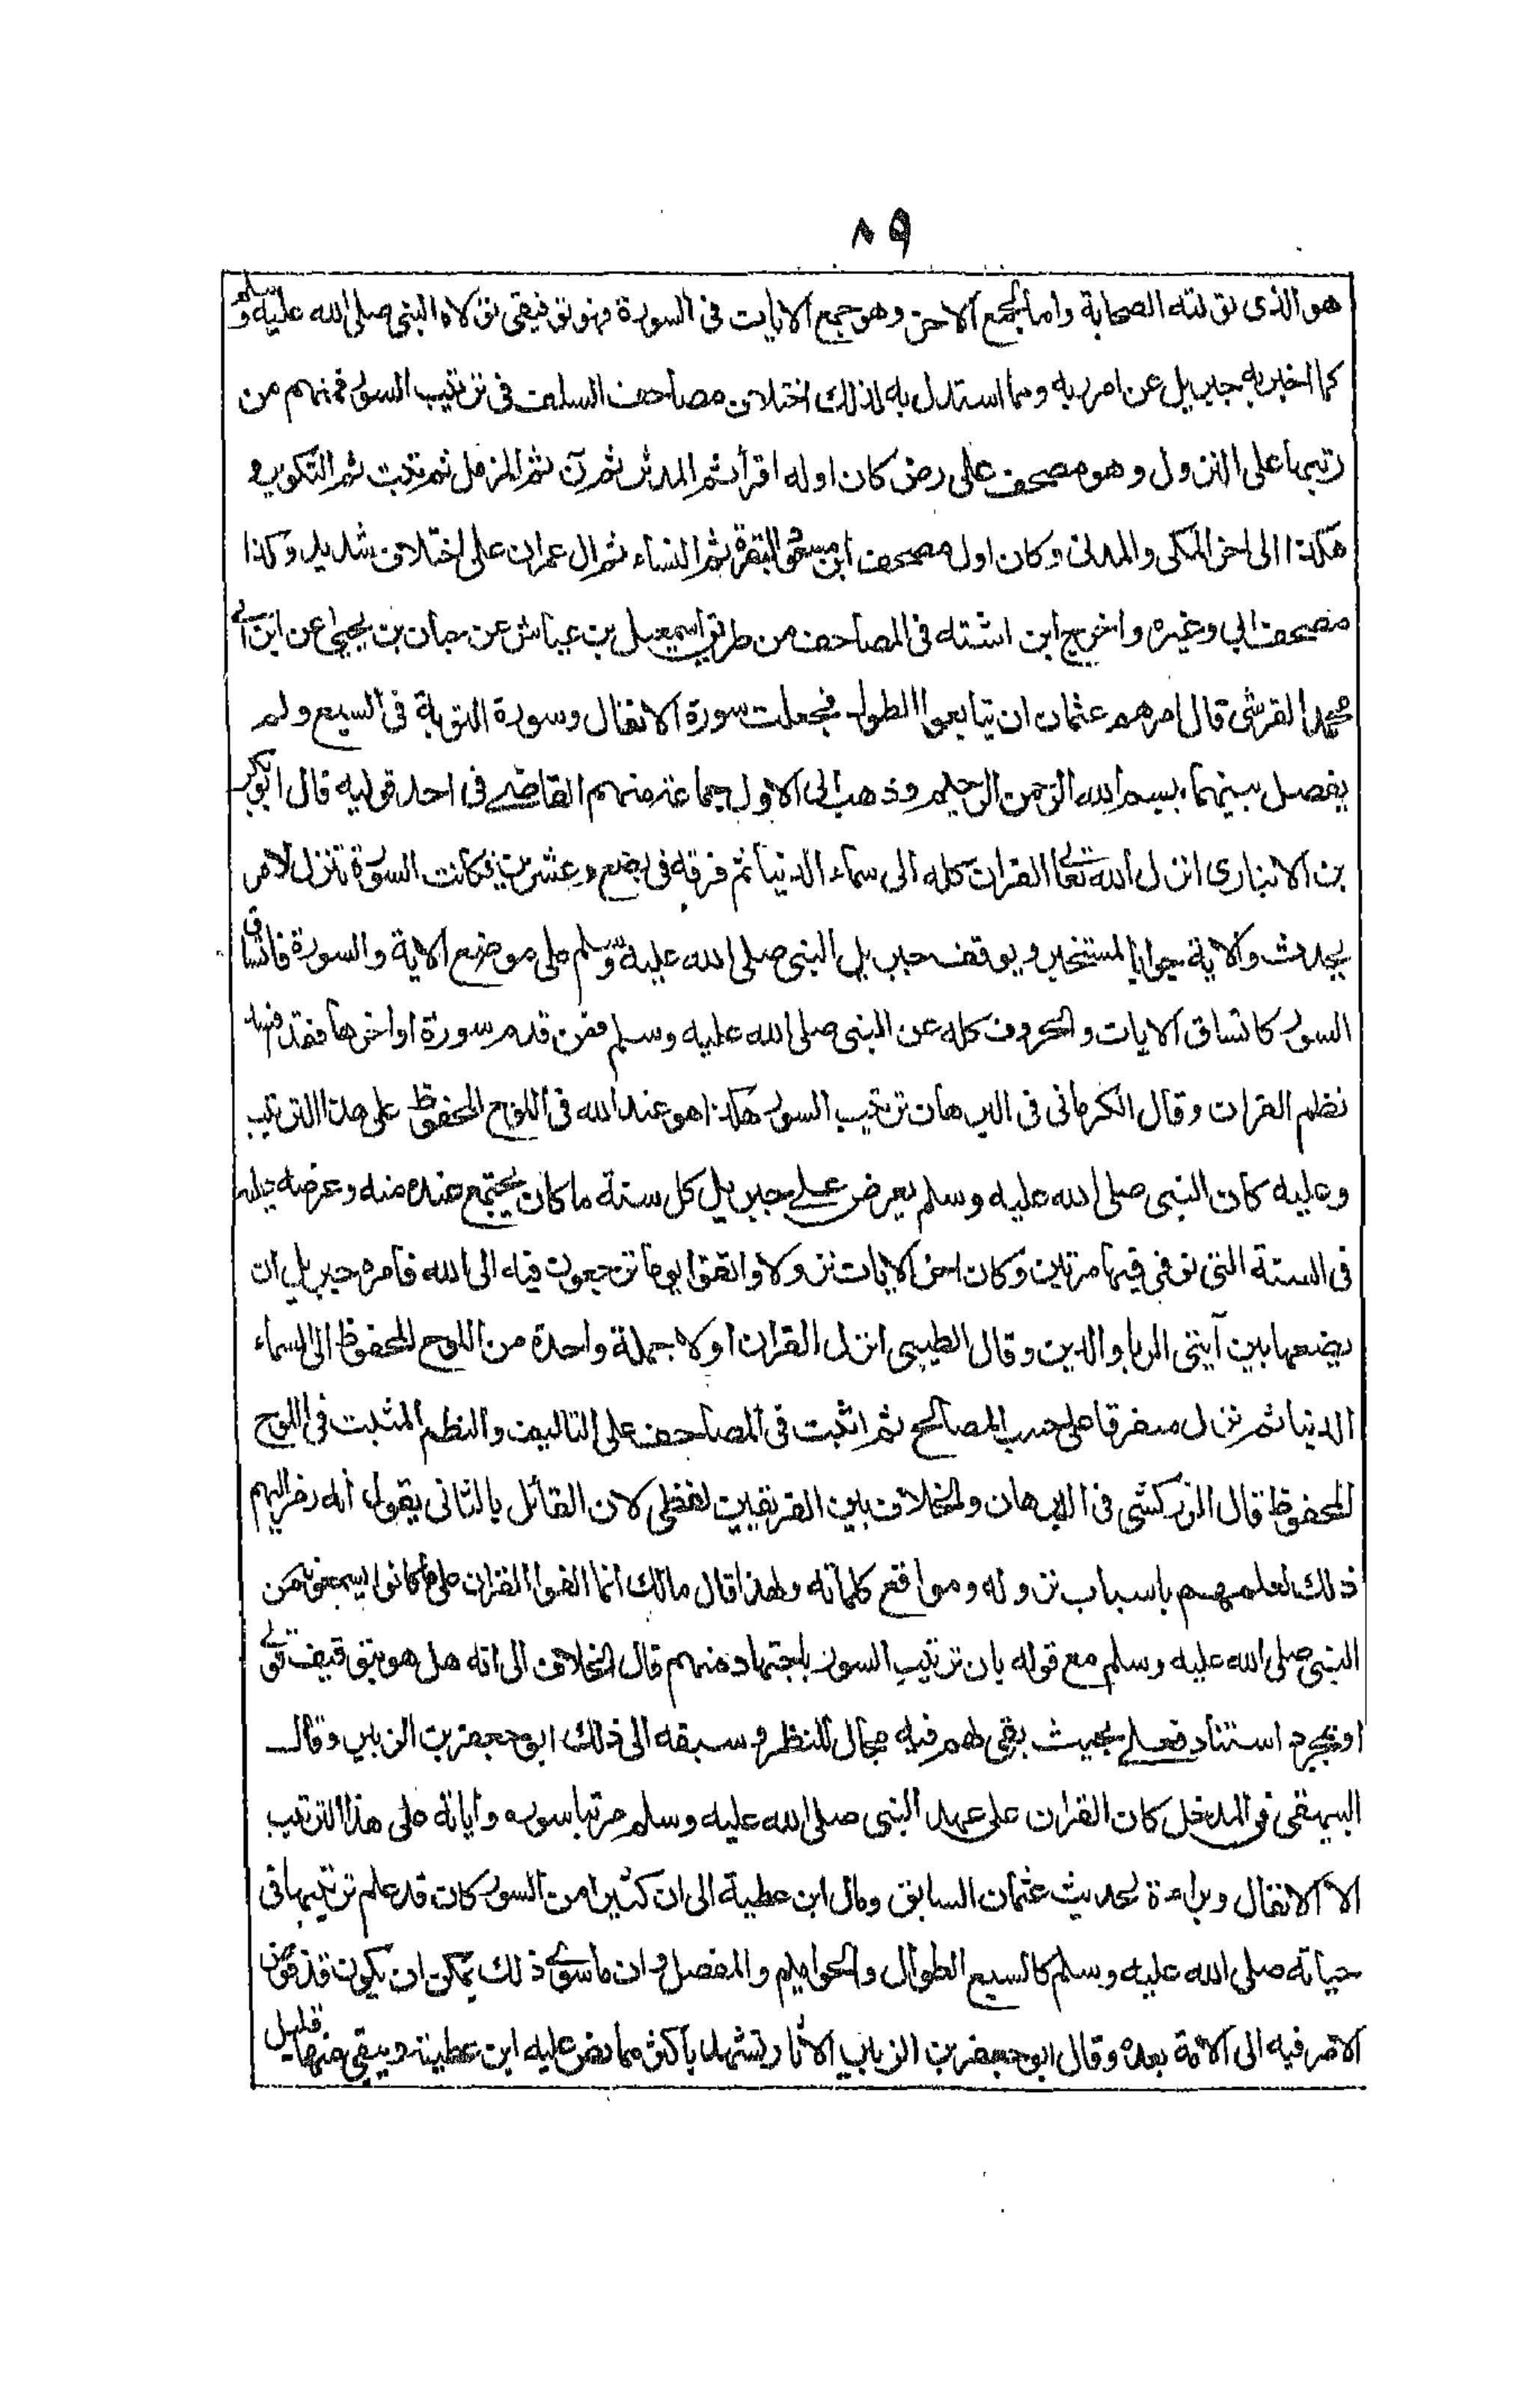 ٨٩
هو الذى تولته الصحابة واما الجمع الاخر وهو جمع الايات فى السورة فهو توقيفى تولاه النبى صلى الله عليه وسلم
كما اخبر به جبريل عن امر ربه ومما استدل به لذلك اختلاف مصاحف السلف فى ترتيب السور فمنهم من
رتبها على النزول وهو مصحف على رض كان اوله اقرأ ثم المدثر ثم ن ثم المزمل ثم تبت ثم التكوير و
هكذا الى اخر المكى والمدنى وكان اول مصحف ابن مسعود البقرة ثم النساء ثم ال عمران على اختلاف شديد وكذا
مصحف ابى وغيره واخرج ابن اشته فى المصاحف من طريق اسمعيل بن عياش عن حبان بن يحيى عن ابن ابى
محمد القرشى قال امرهم عثمان ان يتابعوا الطول فجعلت سورة الانفال وسورة التوبة فى السبع ولم
يفصل بينهما ببسم الله الرحمن الرحيم وذهب الى الاول جماعة منهم القاضے فى احد قوليه قال ابوبكر
بن الانبارى انزل الله تعالى القران كله الى سماء الدنيا ثم فرقه فى بضع وعشرين فكانت السورة تنزل لامر
يحدث والاية جوابا لمستخبر ويوقف جبريل النبى صلى الله عليه وسلم على موضع الاية والسورة فاتساق
السور كاتساق الايات والحروف كله عن النبى صلى الله عليه وسلم فمن قدم سورة او اخرها فقد افسد
نظم القران وقال الكرمانى فى البرهان ترتيب السور هكذا هو عند الله فى اللوح المحفوظ على هذا الترتيب
وعليه كان النبى صلى الله عليه وسلم يعرض علے جبريل كل سنة ما كان يجتمع عنده منه وعرضه عليه
فى السنة التى توفى فيها مرتين وكان اخر الايات نزولا واتقوا يوما ترجعون فيه الى الله فامره جبريل ان
يضعها بين آيتى الربا والدين وقال الطيبى انزل القران اولا جملة واحدة من اللوح المحفوظ الى السماء
الدنيا ثم نزل مفرقا على حسب المصالح ثم اثبت فى المصاحف على التاليف والنظم المثبت فى اللوح
المحفوظ قال الزركشى فى البرهان والخلاف بين الفريقين لفظى لان القائل بالثانى يقول انه رمز اليهم
ذلك لعلمهم باسباب نزوله ومواقع كلماته ولهذا قال مالك انما الفوا القران على ما كانوا يسمعونه من
النبى صلى الله عليه وسلم مع قوله بان ترتيب السور باجتهاد منهم فال الخلاف الى انه هل هو بتوقيف قولے
او بمجرد استناد فعلے بحيث بقى لهم فيه مجال للنظر و سبقه الى ذلك ابو جعفر بن الزبير وقال
البيهقى فى المدخل كان القران على عهد النبى صلى الله عليه وسلم مرتبا سوره واياته على هذا الترتيب
الا الانفال وبراءة لحديث عثمان السابق ومال ابن عطية الى ان كثيرا من السور كان قد علم ترتيبها فى
حياته صلى الله عليه وسلم كالسبع الطوال والحواميم والمفصل و ان ما سوى ذلك يمكن ان يكون قد فوض
الامر فيه الى الامة بعده وقال ابو جعفر بن الزبير الاثار تشهد باكثر مما نص عليه ابن عطية ويبقى منها قليل